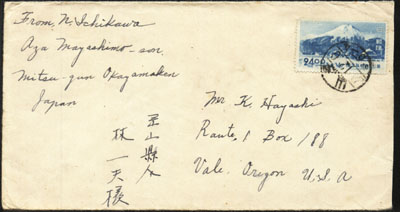 From, N. Ichikawa
Aza Mayashimo-son,
Mitsu-gun Okayamaken
Japan
2400
Mr K Hayashi
Route, 1 Box 188
Vale. Oregon U.S.A
林一天様